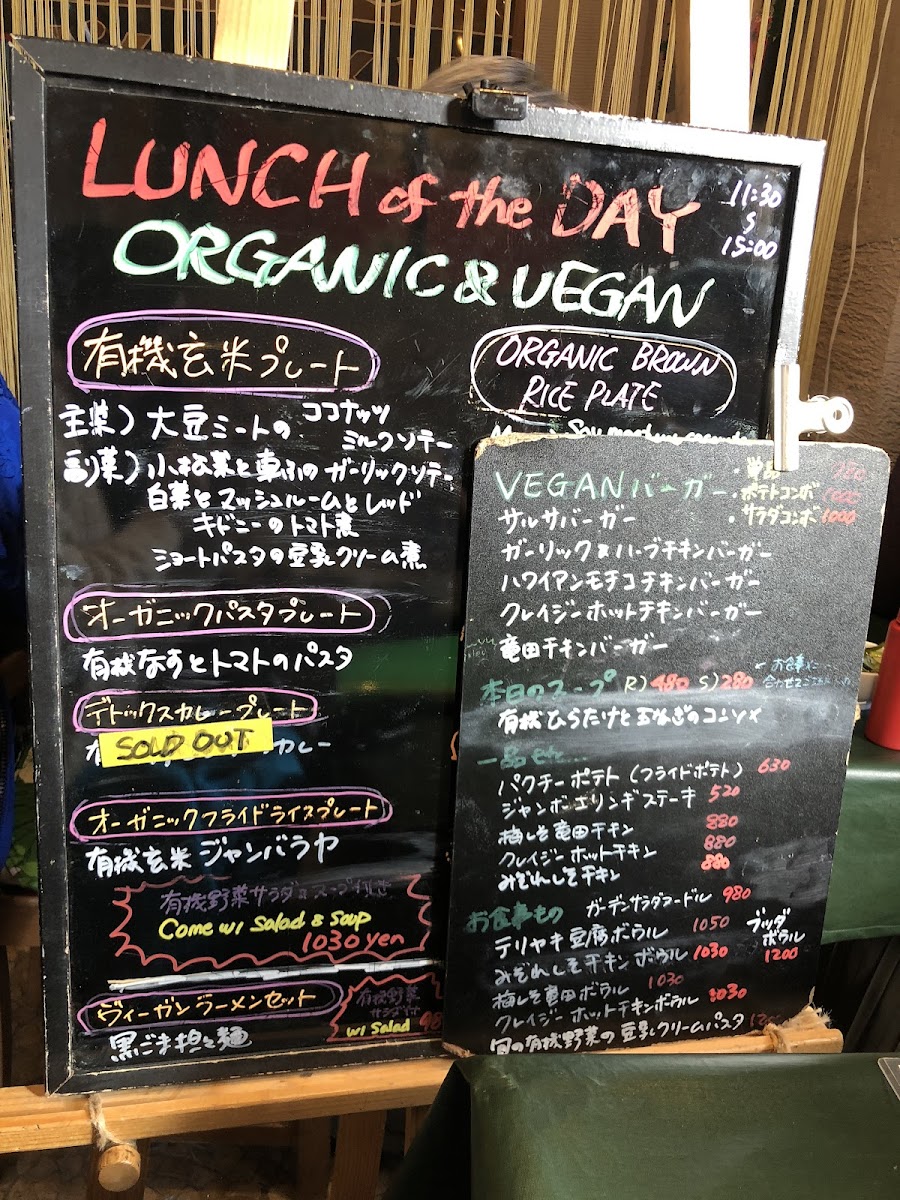 LUNCH of the DAY
11:30
〜
15:00
ORGANIC & VEGAN
有機玄米プレート
主菜) 大豆ミートの ココナッツ
ミルクソテー
副菜) 小松菜と車ふのガーリックソテー
白菜とマッシュルームとレッド
キドニーのトマト煮
ショートパスタの豆乳クリーム煮
オーガニックパスタプレート
有機なすとトマトのパスタ
デトックスカレープレート
SOLD OUT
カレー
オーガニックフライドライスプレート
有機玄米ジャンバラヤ
有機野菜サラダ&スープ付き
Come w/ Salad & Soup
1030 yen
ヴィーガンラーメンセット
黒ごま担々麺
有機野菜
サラダ付
w/ Salad
ORGANIC BROWN
RICE PLATE
VEGANバーガー
・単品
・ポテトコンボ
・サラダコンボ 1000
サルサバーガー
ガーリック&ハーブチキンバーガー
ハワイアンモチコチキンバーガー
クレイジーホットチキンバーガー
竜田チキンバーガー
本日のスープ R) 480 S) 280
← お食事に
有機ひらたけと玉ねぎのコンソメ
一品
パクチーポテト (フライドポテト) 630
ジャンボエリンギステーキ 520
梅しそ竜田チキン 880
クレイジーホットチキン 880
みぞれしそチキン 880
お食事もの ガーデンサラダヌードル 980
テリヤキ豆腐ボウル 1050
ブッダ
ボウル
1200
みぞれしそチキンボウル 1030
梅しそ竜田ボウル 1030
クレイジーホットチキンボウル 1030
旬の有機野菜の豆乳クリームパスタ